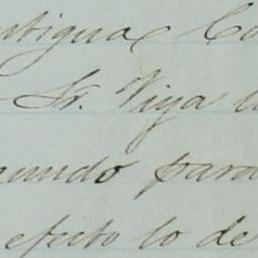 antigua Co
Sr. Viya l
mundo para
efecto lo de